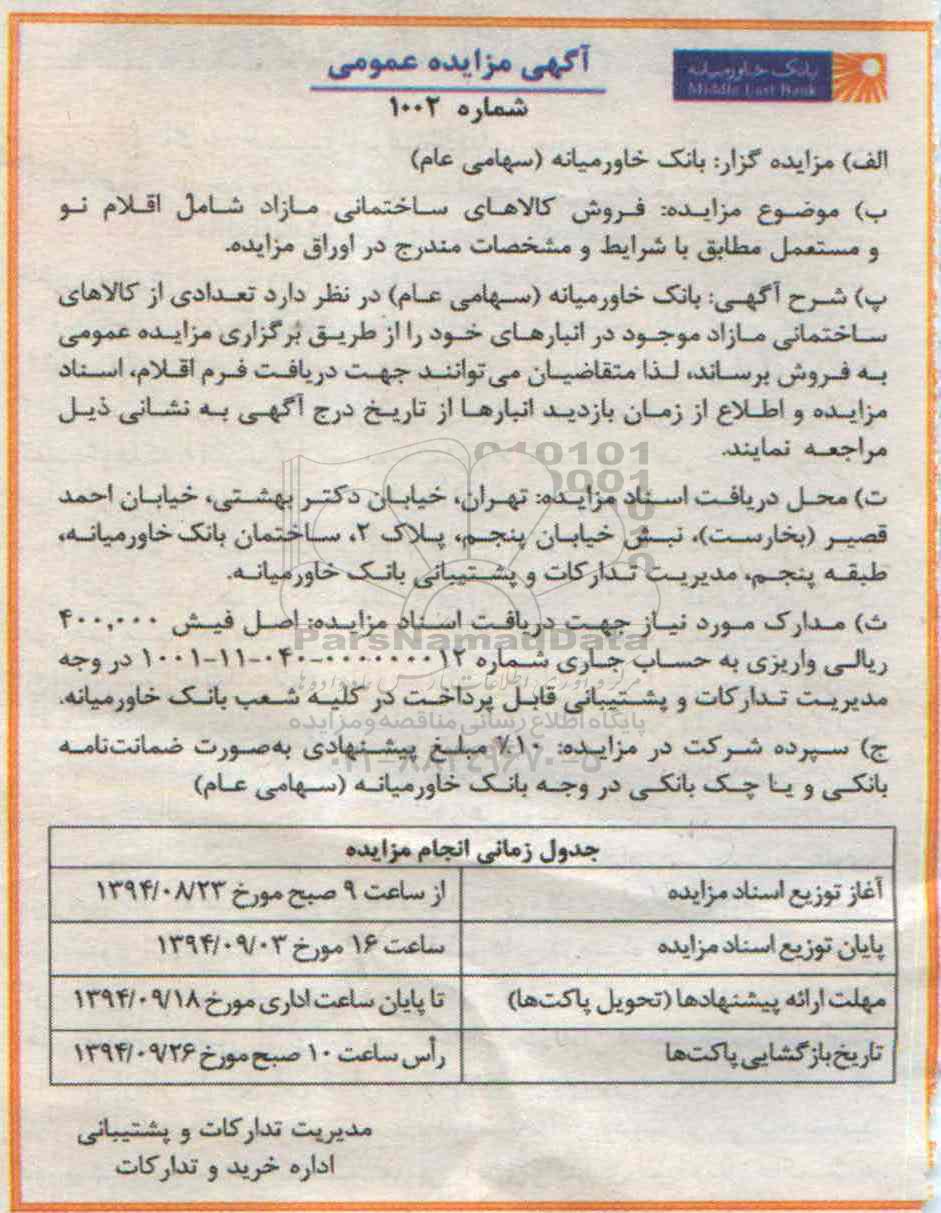 بانک خاورمیانه
Middle East Bank
آگهی مزایده عمومی
شماره ۱۰۰۲
الف) مزایده گزار: بانک خاورمیانه (سهامی عام)
ب) موضوع مزایده: فروش کالاهای ساختمانی مازاد شامل اقلام نو
و مستعمل مطابق با شرایط و مشخصات مندرج در اوراق مزایده.
پ) شرح آگهی: بانک خاورمیانه (سهامی عام) در نظر دارد تعدادی از کالاهای
ساختمانی مازاد موجود در انبارهای خود را از طریق برگزاری مزایده عمومی
به فروش برساند، لذا متقاضیان می‌توانند جهت دریافت فرم اقلام، اسناد
مزایده و اطلاع از زمان بازدید انبارها از تاریخ درج آگهی به نشانی ذیل
مراجعه نمایند.
ت) محل دریافت اسناد مزایده: تهران، خیابان دکتر بهشتی، خیابان احمد
قصیر (بخارست)، نبش خیابان پنجم، پلاک ۲، ساختمان بانک خاورمیانه،
طبقه پنجم، مدیریت تدارکات و پشتیبانی بانک خاورمیانه.
ث) مدارک مورد نیاز جهت دریافت اسناد مزایده: اصل فیش ۴۰۰,۰۰۰
ریالی واریزی به حساب جاری شماره ۱۰۰۱-۱۱-۰۴۰-۰۰۰۰۰۰۰۱۲ در وجه
مدیریت تدارکات و پشتیبانی قابل پرداخت در کلیه شعب بانک خاورمیانه.
ج) سپرده شرکت در مزایده: ۱۰٪ مبلغ پیشنهادی به‌صورت ضمانت‌نامه
بانکی و یا چک بانکی در وجه بانک خاورمیانه (سهامی عام)
جدول زمانی انجام مزایده
آغاز توزیع اسناد مزایده از ساعت ۹ صبح مورخ ۱۳۹۴/۰۸/۲۳
پایان توزیع اسناد مزایده ساعت ۱۶ مورخ ۱۳۹۴/۰۹/۰۳
مهلت ارائه پیشنهادها (تحویل پاکت‌ها) تا پایان ساعت اداری مورخ ۱۳۹۴/۰۹/۱۸
تاریخ بازگشایی پاکت‌ها رأس ساعت ۱۰ صبح مورخ ۱۳۹۴/۰۹/۲۶
مدیریت تدارکات و پشتیبانی
اداره خرید و تدارکات
ParsNamadData
پایگاه اطلاع رسانی مناقصه و مزایده
۰۲۱-۸۸۳۴۹۶۷۰-۵